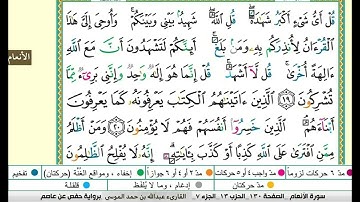 قُلْ أَيُّ شَيْءٍ أَكْبَرُ شَهَٰدَةً ۖ قُلِ ٱللَّهُ ۖ شَهِيدٌۢ بَيْنِي وَبَيْنَكُمْ ۚ وَأُوحِيَ إِلَيَّ هَٰذَا
الأنعام
ٱلْقُرْءَانُ لِأُنذِرَكُم بِهِۦ وَمَنۢ بَلَغَ ۚ أَئِنَّكُمْ لَتَشْهَدُونَ أَنَّ مَعَ ٱللَّهِ
ءَالِهَةً أُخْرَىٰ ۚ قُل لَّآ أَشْهَدُ ۚ قُلْ إِنَّمَا هُوَ إِلَٰهٌ وَٰحِدٌ وَإِنَّنِي بَرِيٓءٌ مِّمَّا
تُشْرِكُونَ ١٩ ٱلَّذِينَ ءَاتَيْنَٰهُمُ ٱلْكِتَٰبَ يَعْرِفُونَهُۥ كَمَا يَعْرِفُونَ
أَبْنَآءَهُمُ ۘ ٱلَّذِينَ خَسِرُوٓا۟ أَنفُسَهُمْ فَهُمْ لَا يُؤْمِنُونَ ٢٠ وَمَنْ أَظْلَمُ
مِمَّنِ ٱفْتَرَىٰ عَلَى ٱللَّهِ كَذِبًا أَوْ كَذَّبَ بِـَٔايَٰتِهِۦٓ ۗ إِنَّهُۥ لَا يُفْلِحُ ٱلظَّٰلِمُونَ
مدّ ٦ حركات لزوماً مدّ ٢ أو ٤ أو ٦ جوازاً إخفاء ، ومواقع الغُنَّة (حركتان) تفخيم
مدّ حركتان إدغام ، وما لا يُلفَظ قلقلة
سورة الأنعام الصفحة ١٣٠ الحزب ١٣ الجزء ٧ القارىء عبدالله بن حمد الموسى برواية حفص عن عاصم